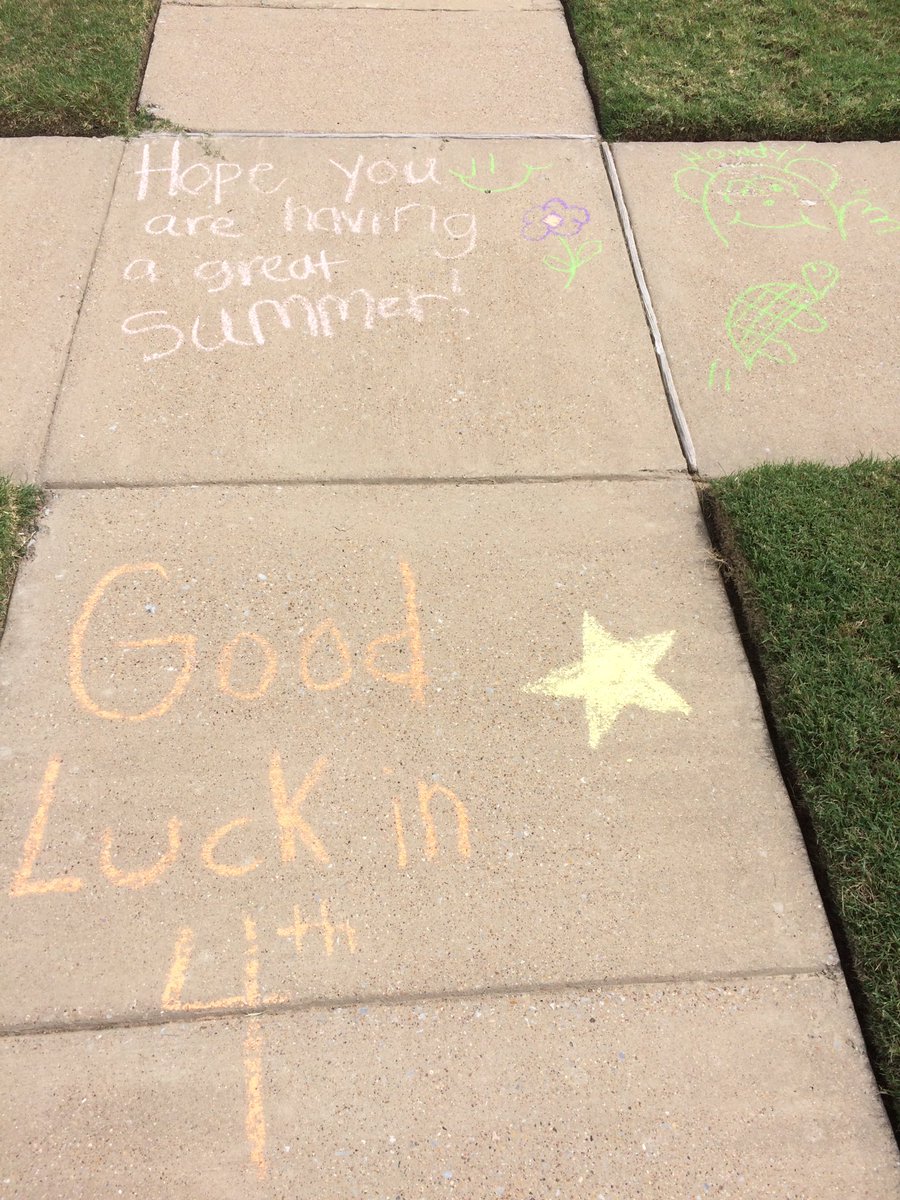 Hope you
are having
a great
summer!
Howdy!
Good
Luck in
4th